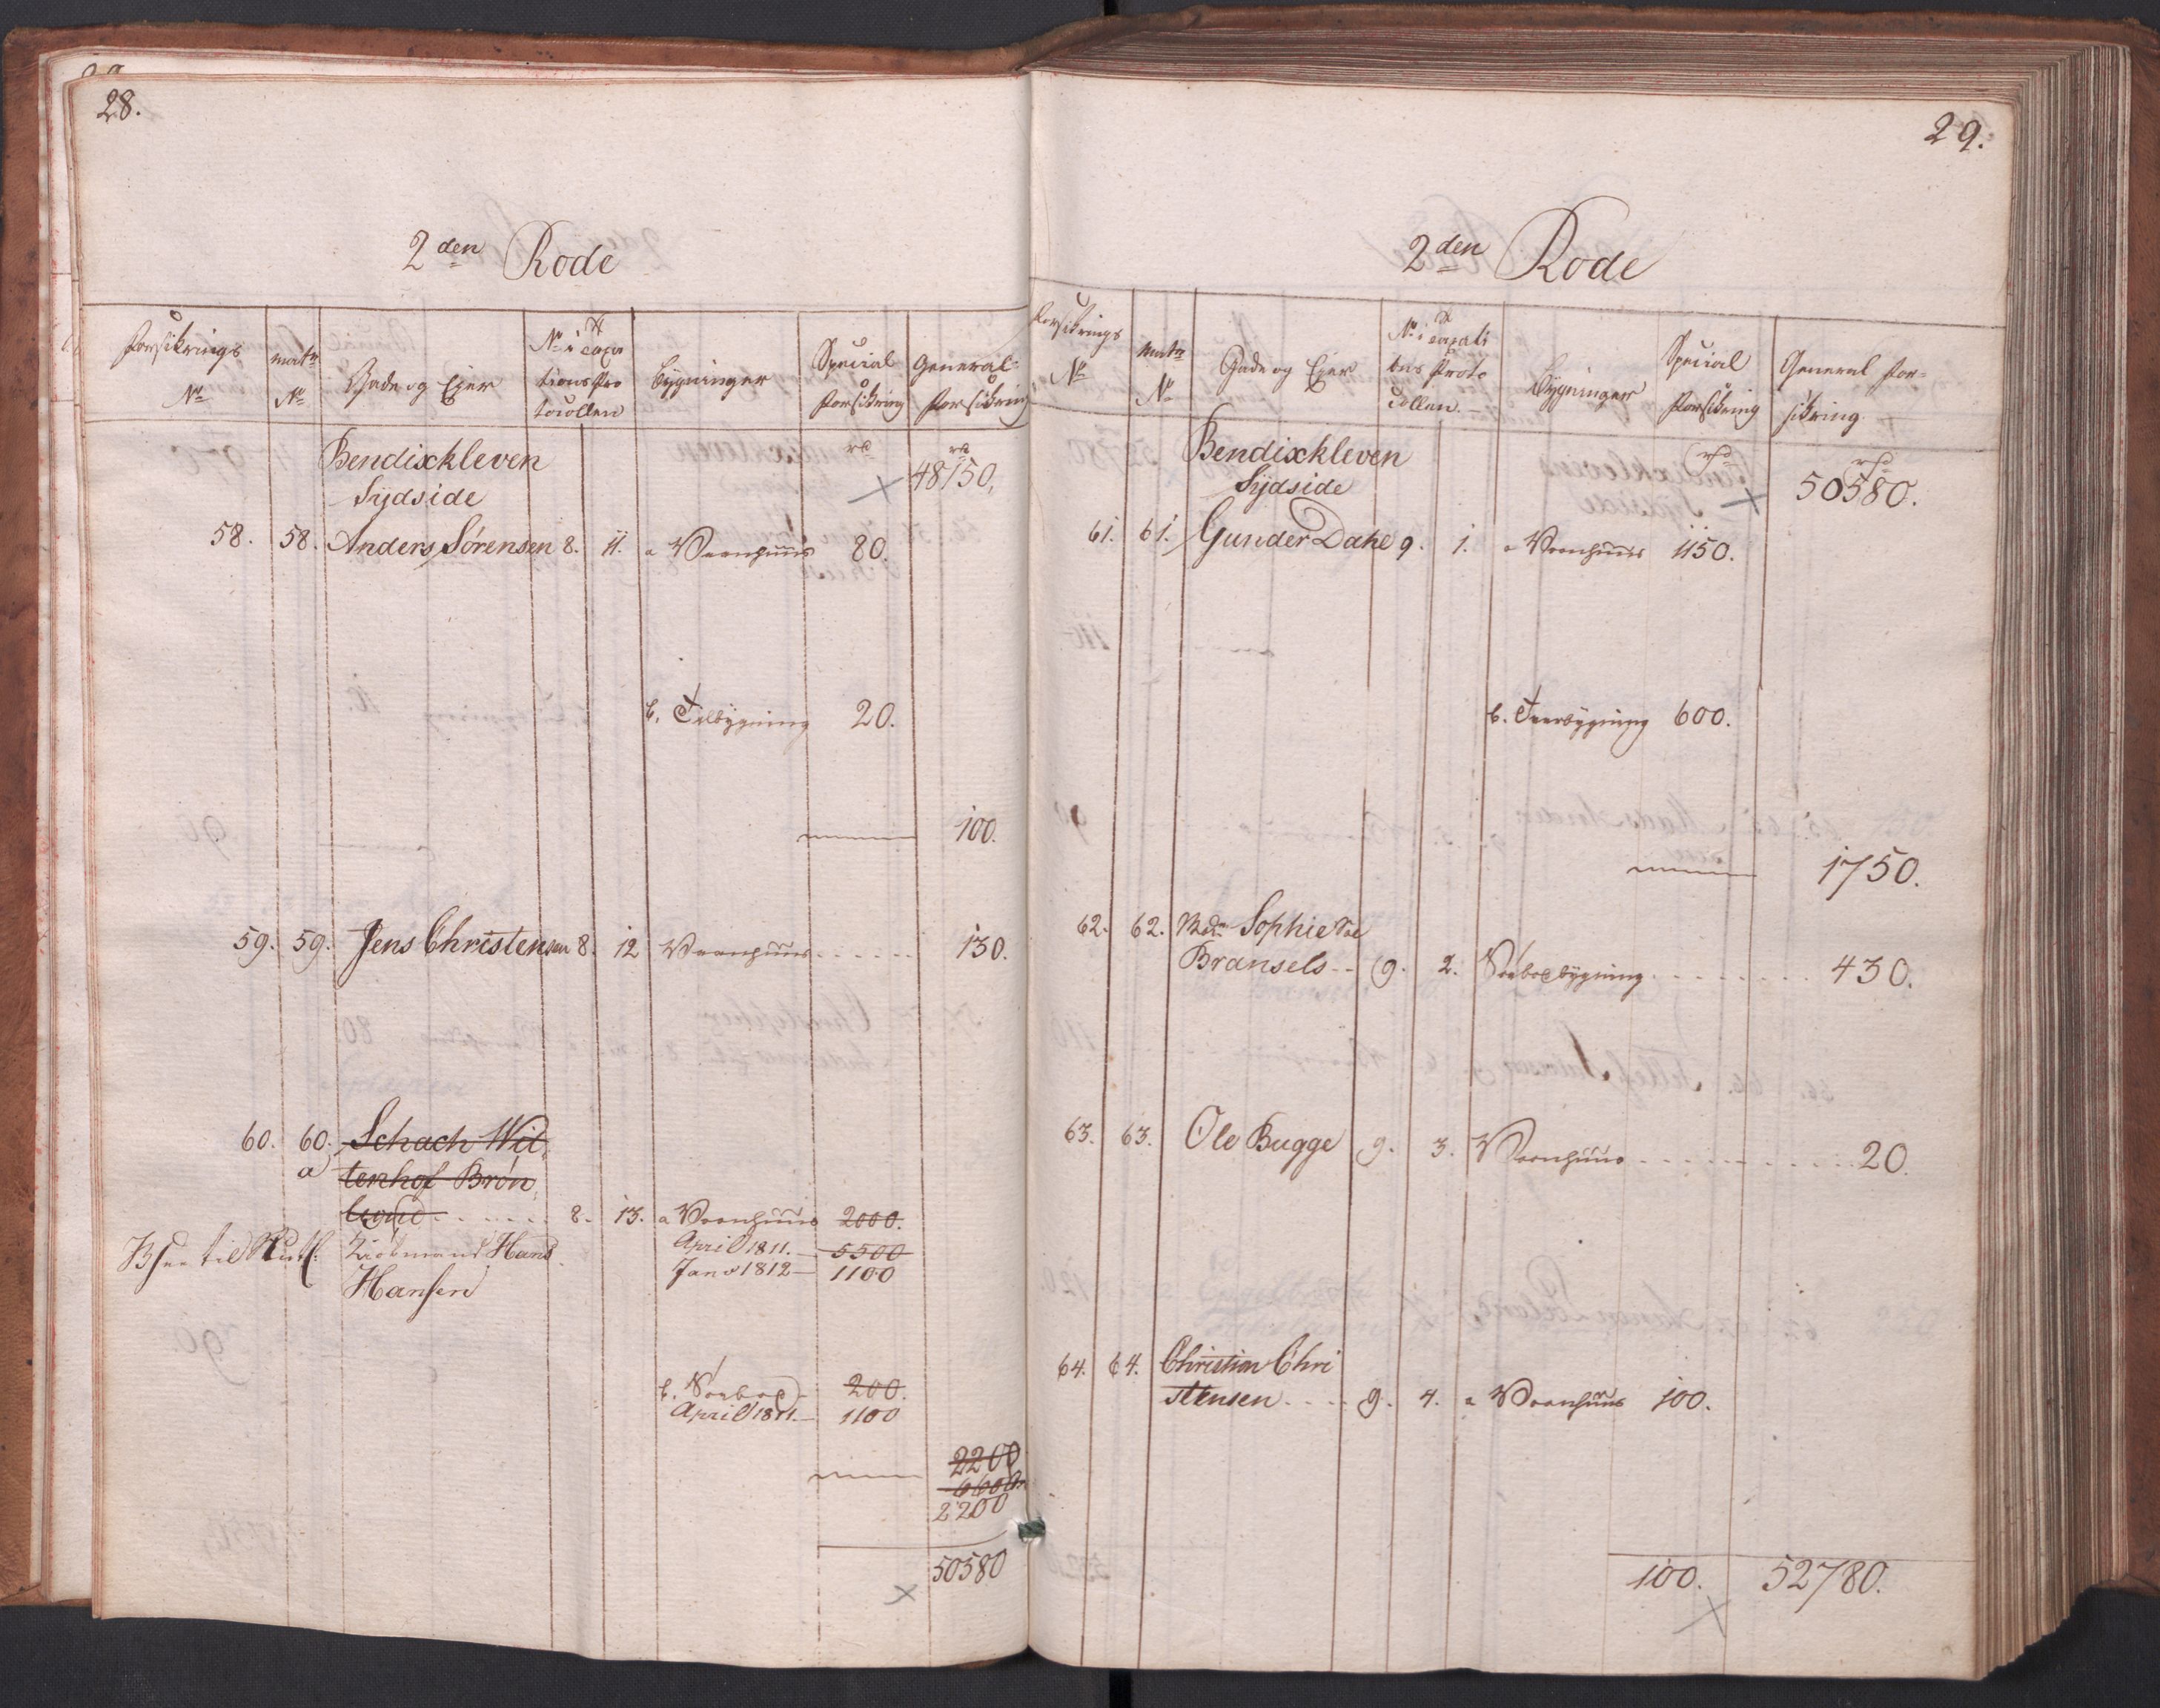 28.
2den Rode
Forsikrings No
Matr No
Gade og Ejer
No i Taxa
tions Pro
tocollen
Bygninger
Special
Forsikring
General-
Forsikring
Bendixkleven
Sydside
rd
rd
48150.
58. 58. Anders Sørensen 8. 11. a Vaanhuus 80.
b. Tilbygning 20.
100.
59. 59. Jens Christensen 8. 12 Vaanhuus . . . . . . 130.
60. 60. Schach Wit
a tenhof Brøn
lund . . . . . . 8. 13. a Vaanhuus 2000.
Kiøbmand Hans April 1811. 5500
Hansen Janr 1812 1100
b. Søeboe 200.
April 1811. 1100
2200
6600
2200
50580
29.
2den Rode
Forsikrings
No
Matr
No
Gade og Ejer
No i Taxati
ons Proto
collen.
Bygninger
Special
Forsikring
General For-
sikring
Bendixkleven
Sydside
rd
rd
50580.
61. 61. Gunder Dahl 9. 1. a Vaanhuus 1150.
b. Tverbygning 600.
1750.
62. 62. Mdm Sophie Sal
Bransels - - 9. 2. Søeboebygning . . . . . . . . 430.
63. 63. Ole Bugge 9. 3. Vaanhuus . . . . . . . . 20.
64. 64. Christian Chri
stensen . . . . 9. 4. a Vaanhuus 100.
100. 52780.